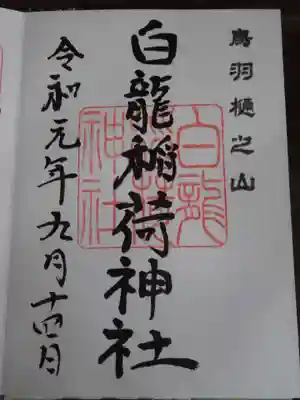 鳥羽樋之山
白龍稲荷神社
白龍
稲荷
神社
令和元年九月十四日